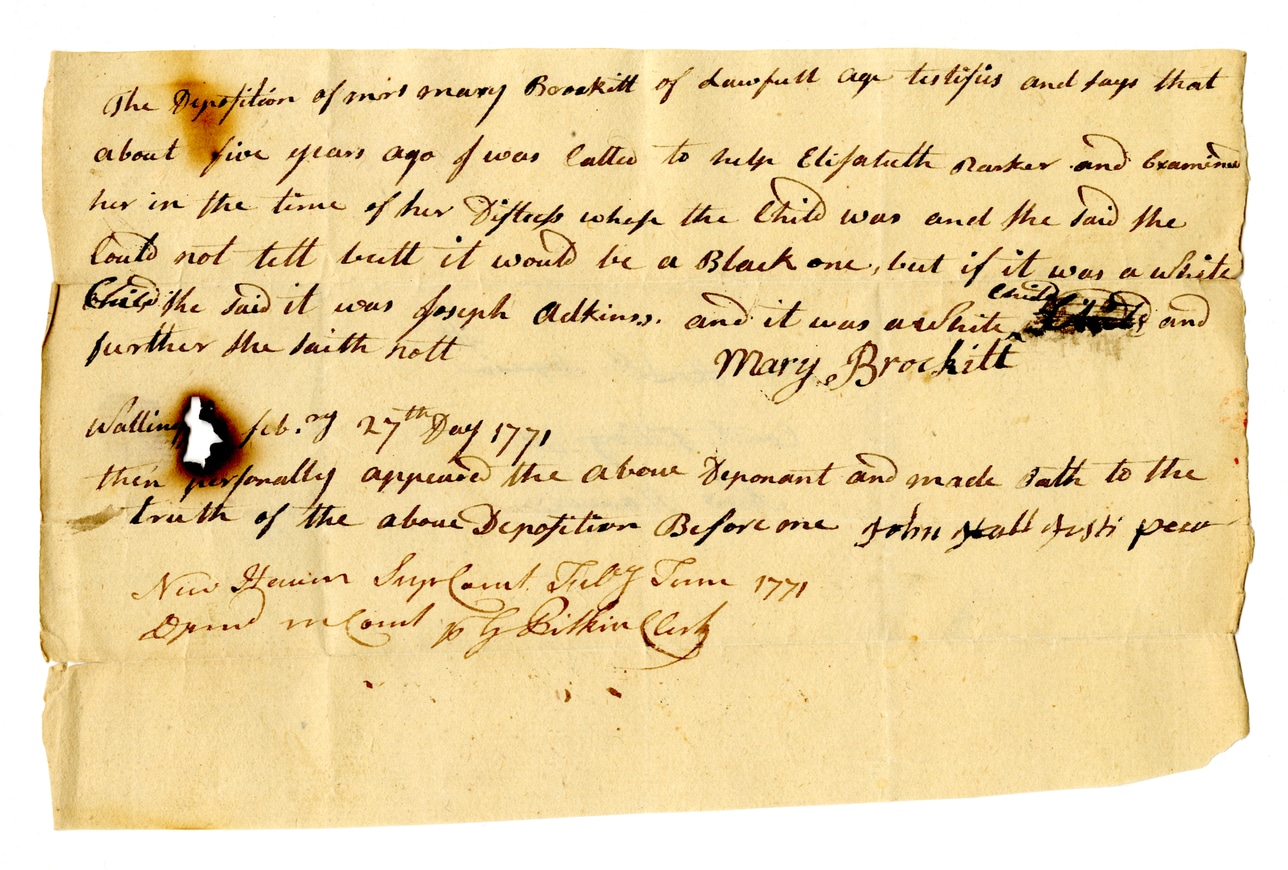 The Deposition of mrs mary Brockitt of Lawfull age testifies and says that
about five years ago I was Called to help Elisabeth Parker and Examined
her in the time of her Distress whose the Child was and she said she
Could not tell butt it would be a Black one, but if it was a white
Child she said it was Joseph Adkinss. and it was a white Child and
further she saith nott Mary Brockitt
Walling feb.ry 27th Day 1771
then personally appeared the above Deponant and made Oath to the
truth of the above Deposition Before me John Hall Justi peace
New Haven Supr Court Feby Term 1771
Opend in Court pr G Pitkin Clerk